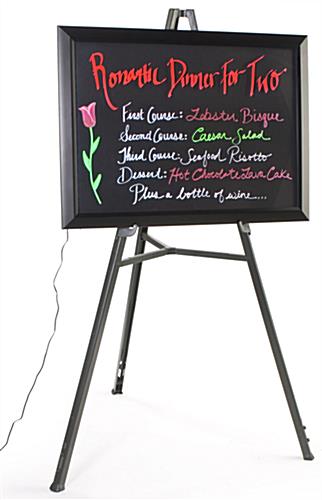 Romantic Dinner For Two
First Course: Lobster Bisque
Second Course: Caesar Salad
Third Course: Seafood Risotto
Dessert: Hot Chocolate Lava Cake
Plus a bottle of wine....